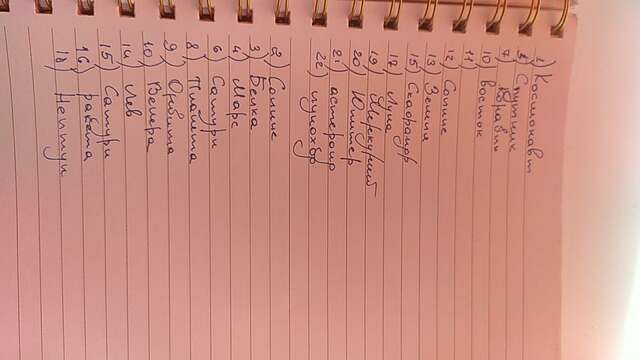 1) Космонавт
8) Спутник
7) Корабль
10) восток
11)
12) Солнце
13) Земля
15) Скафандр
17) Луна
19) Меркурий
20) Юпитер
21) астероид
22) луноход
2) Солнце
3) Белка
4) Марс
6) Сатурн
8) Планета
9) Орбита
10) Венера
14) Лев
15) Сатурн
16) ракета
18) Нептун